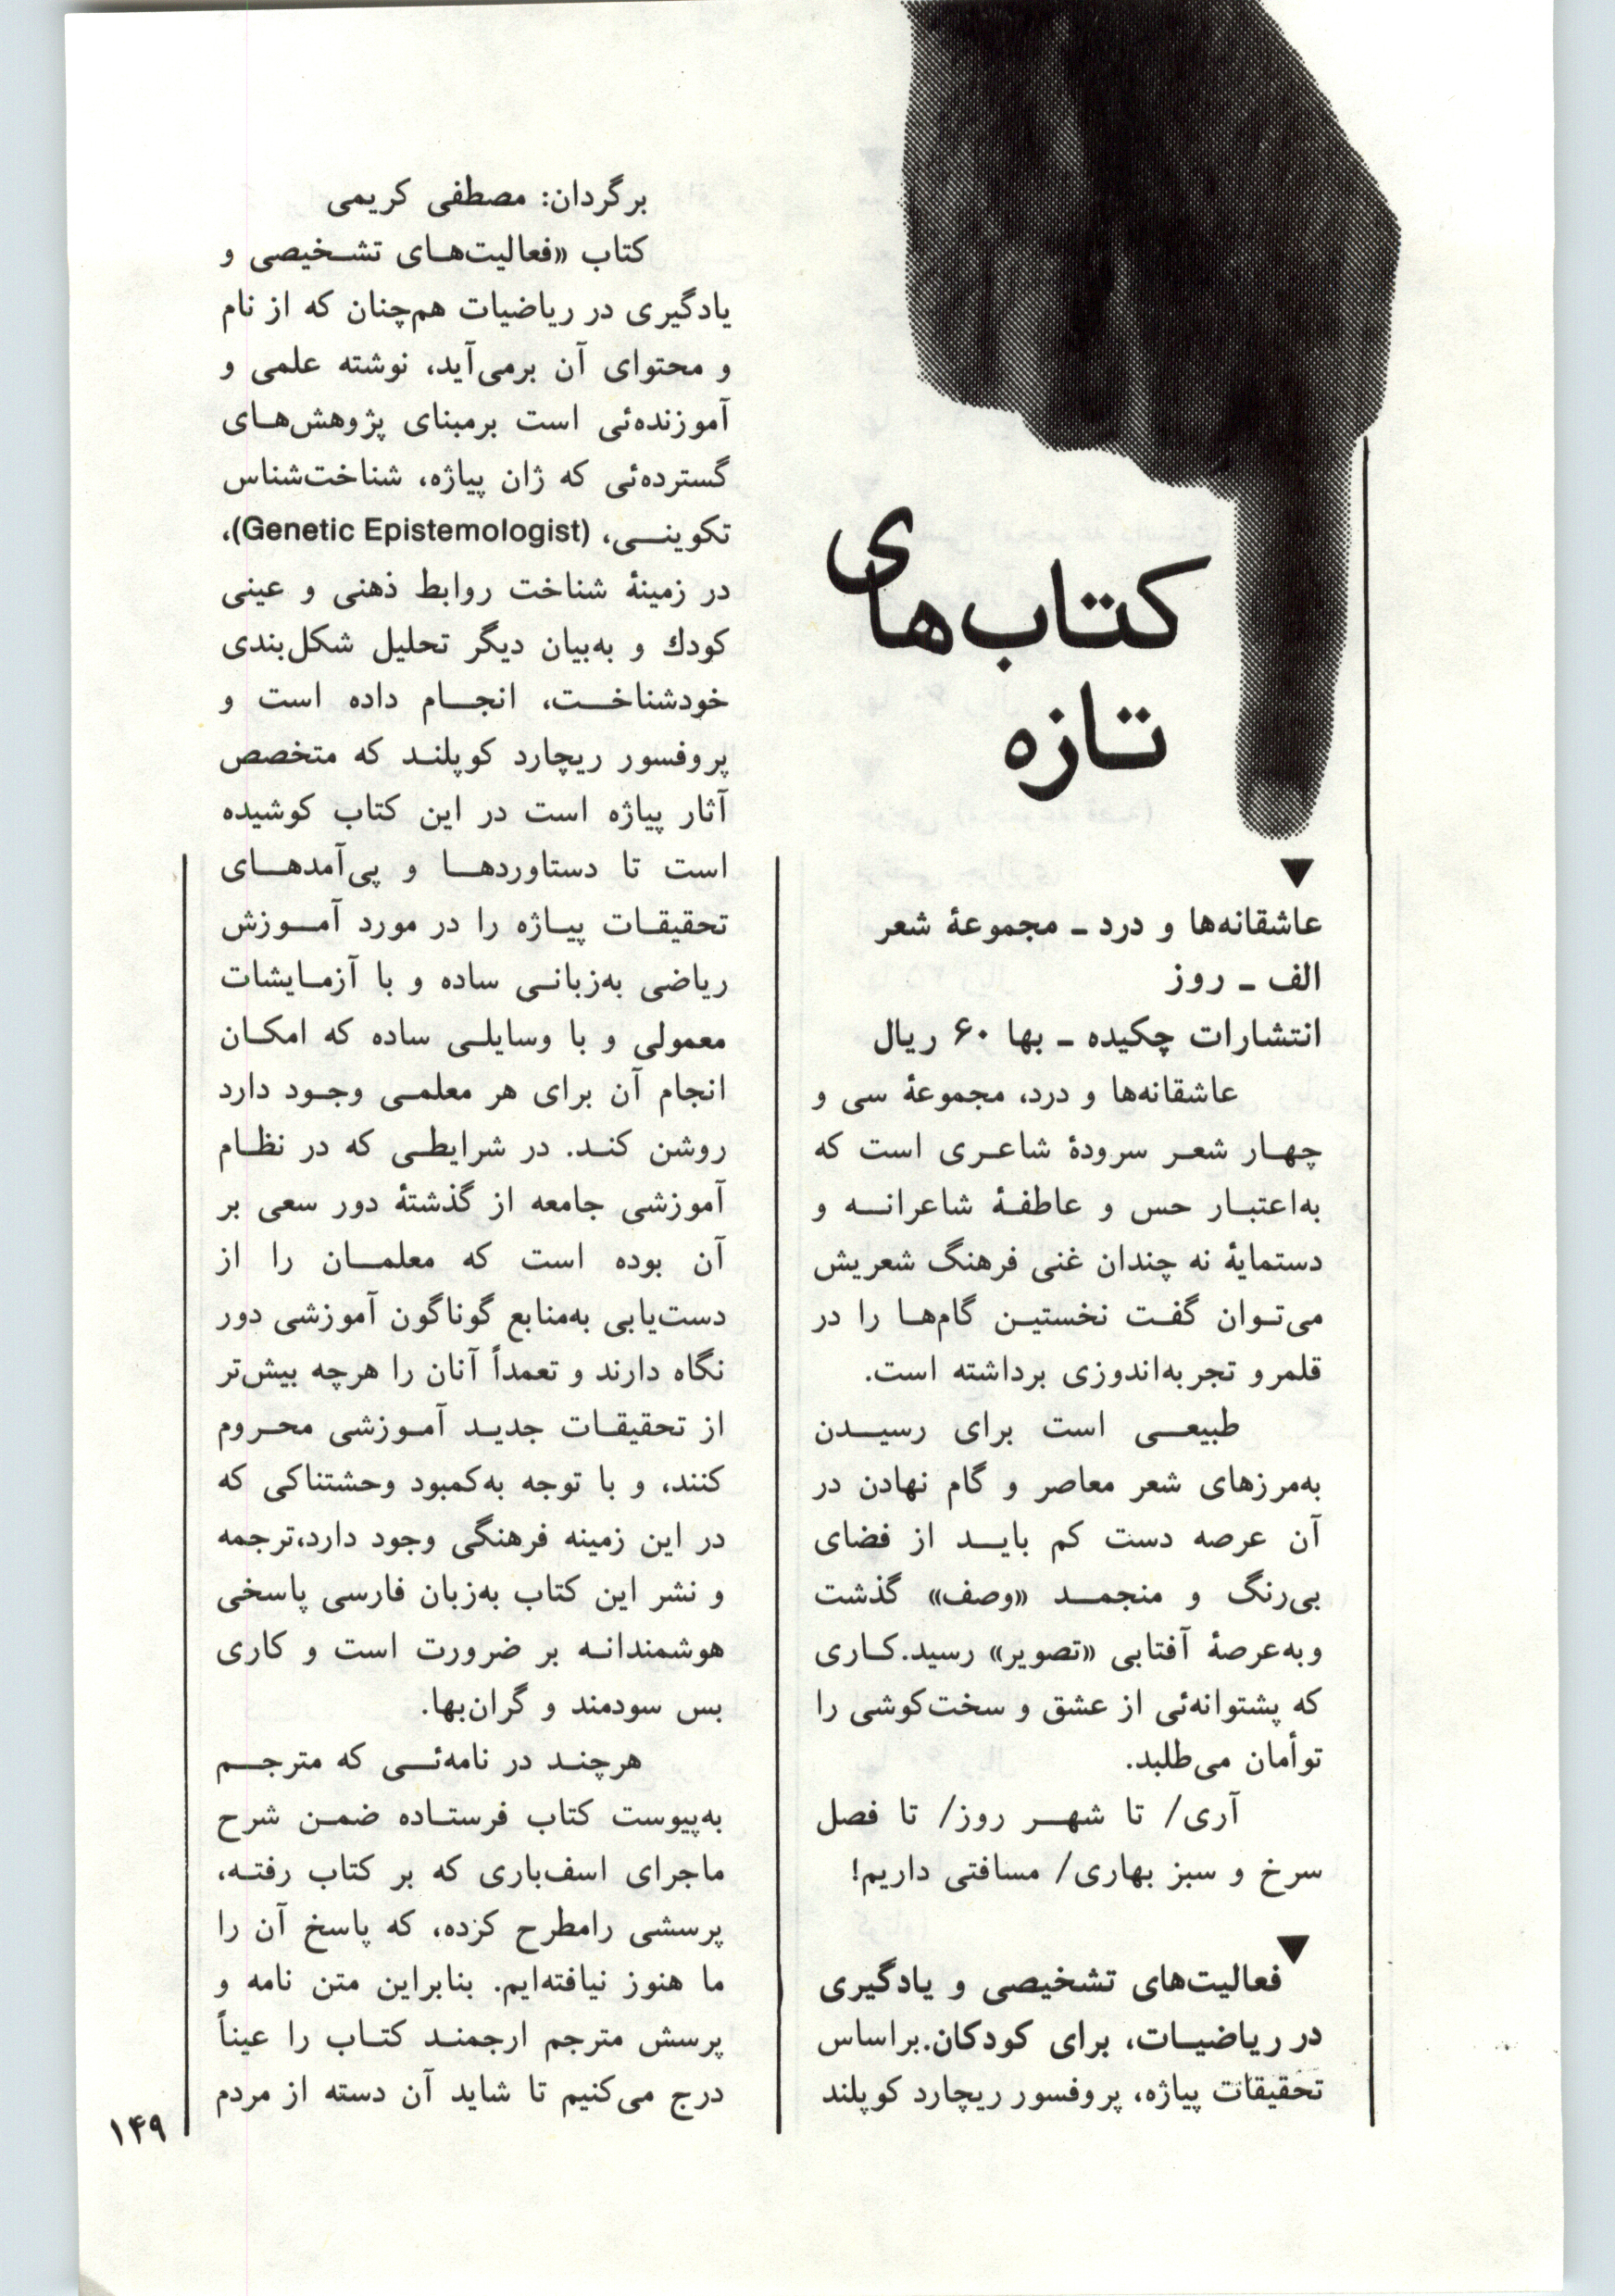 کتاب‌های
تازه
▼
عاشقانه‌ها و درد ـ مجموعهٔ شعر
الف ـ روز
انتشارات چکیده ـ بها ۶۰ ریال
عاشقانه‌ها و درد، مجموعهٔ سی و
چهار شعر سرودهٔ شاعری است که
به‌اعتبار حس و عاطفهٔ شاعرانه و
دستمایهٔ نه چندان غنی فرهنگ شعریش
می‌توان گفت نخستین گام‌ها را در
قلمرو تجربه‌اندوزی برداشته است.
طبیعی است برای رسیدن
به‌مرزهای شعر معاصر و گام نهادن در
آن عرصه دست کم باید از فضای
بی‌رنگ و منجمد «وصف» گذشت
وبه‌عرصهٔ آفتابی «تصویر» رسید.کاری
که پشتوانه‌ئی از عشق و سخت‌کوشی را
توأمان می‌طلبد.
آری/ تا شهر روز/ تا فصل
سرخ و سبز بهاری/ مسافتی داریم!
▼
فعالیت‌های تشخیصی و یادگیری
در ریاضیات، برای کودکان.براساس
تحقیقات پیاژه، پروفسور ریچارد کوپلند
برگردان: مصطفی کریمی
کتاب «فعالیت‌های تشخیصی و
یادگیری در ریاضیات هم‌چنان که از نام
و محتوای آن برمی‌آید، نوشته علمی و
آموزنده‌ئی است برمبنای پژوهش‌های
گسترده‌ئی که ژان پیاژه، شناخت‌شناس
تکوینی، (Genetic Epistemologist)،
در زمینهٔ شناخت روابط ذهنی و عینی
کودك و به‌بیان دیگر تحلیل شکل‌بندی
خودشناخت، انجام داده است و
پروفسور ریچارد کوپلند که متخصص
آثار پیاژه است در این کتاب کوشیده
است تا دستاوردها و پی‌آمدهای
تحقیقات پیاژه را در مورد آموزش
ریاضی به‌زبانی ساده و با آزمایشات
معمولی و با وسایلی ساده که امکان
انجام آن برای هر معلمی وجود دارد
روشن کند. در شرایطی که در نظام
آموزشی جامعه از گذشتهٔ دور سعی بر
آن بوده است که معلمان را از
دست‌یابی به‌منابع گوناگون آموزشی دور
نگاه دارند و تعمداً آنان را هرچه بیش‌تر
از تحقیقات جدید آموزشی محروم
کنند، و با توجه به‌کمبود وحشتناکی که
در این زمینه فرهنگی وجود دارد،ترجمه
و نشر این کتاب به‌زبان فارسی پاسخی
هوشمندانه بر ضرورت است و کاری
بس سودمند و گران‌بها.
هرچند در نامه‌ئی که مترجم
به‌پیوست کتاب فرستاده ضمن شرح
ماجرای اسف‌باری که بر کتاب رفته،
پرسشی رامطرح کزده، که پاسخ آن را
ما هنوز نیافته‌ایم. بنابراین متن نامه و
پرسش مترجم ارجمند کتاب را عیناً
درج می‌کنیم تا شاید آن دسته از مردم
۱۴۹